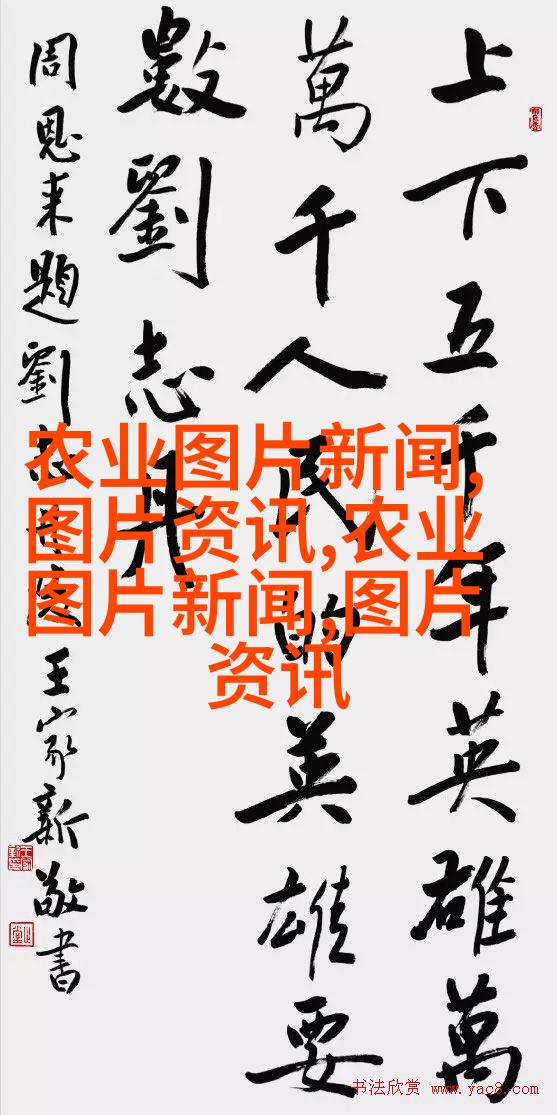 上下五千年英雄萬
萬千人民的英雄要
數劉志丹
周恩来題劉志丹王家新敬書
农业图片新闻,
图片资讯,农业
图片新闻,图片
资讯
书法欣赏 www.yac8.com